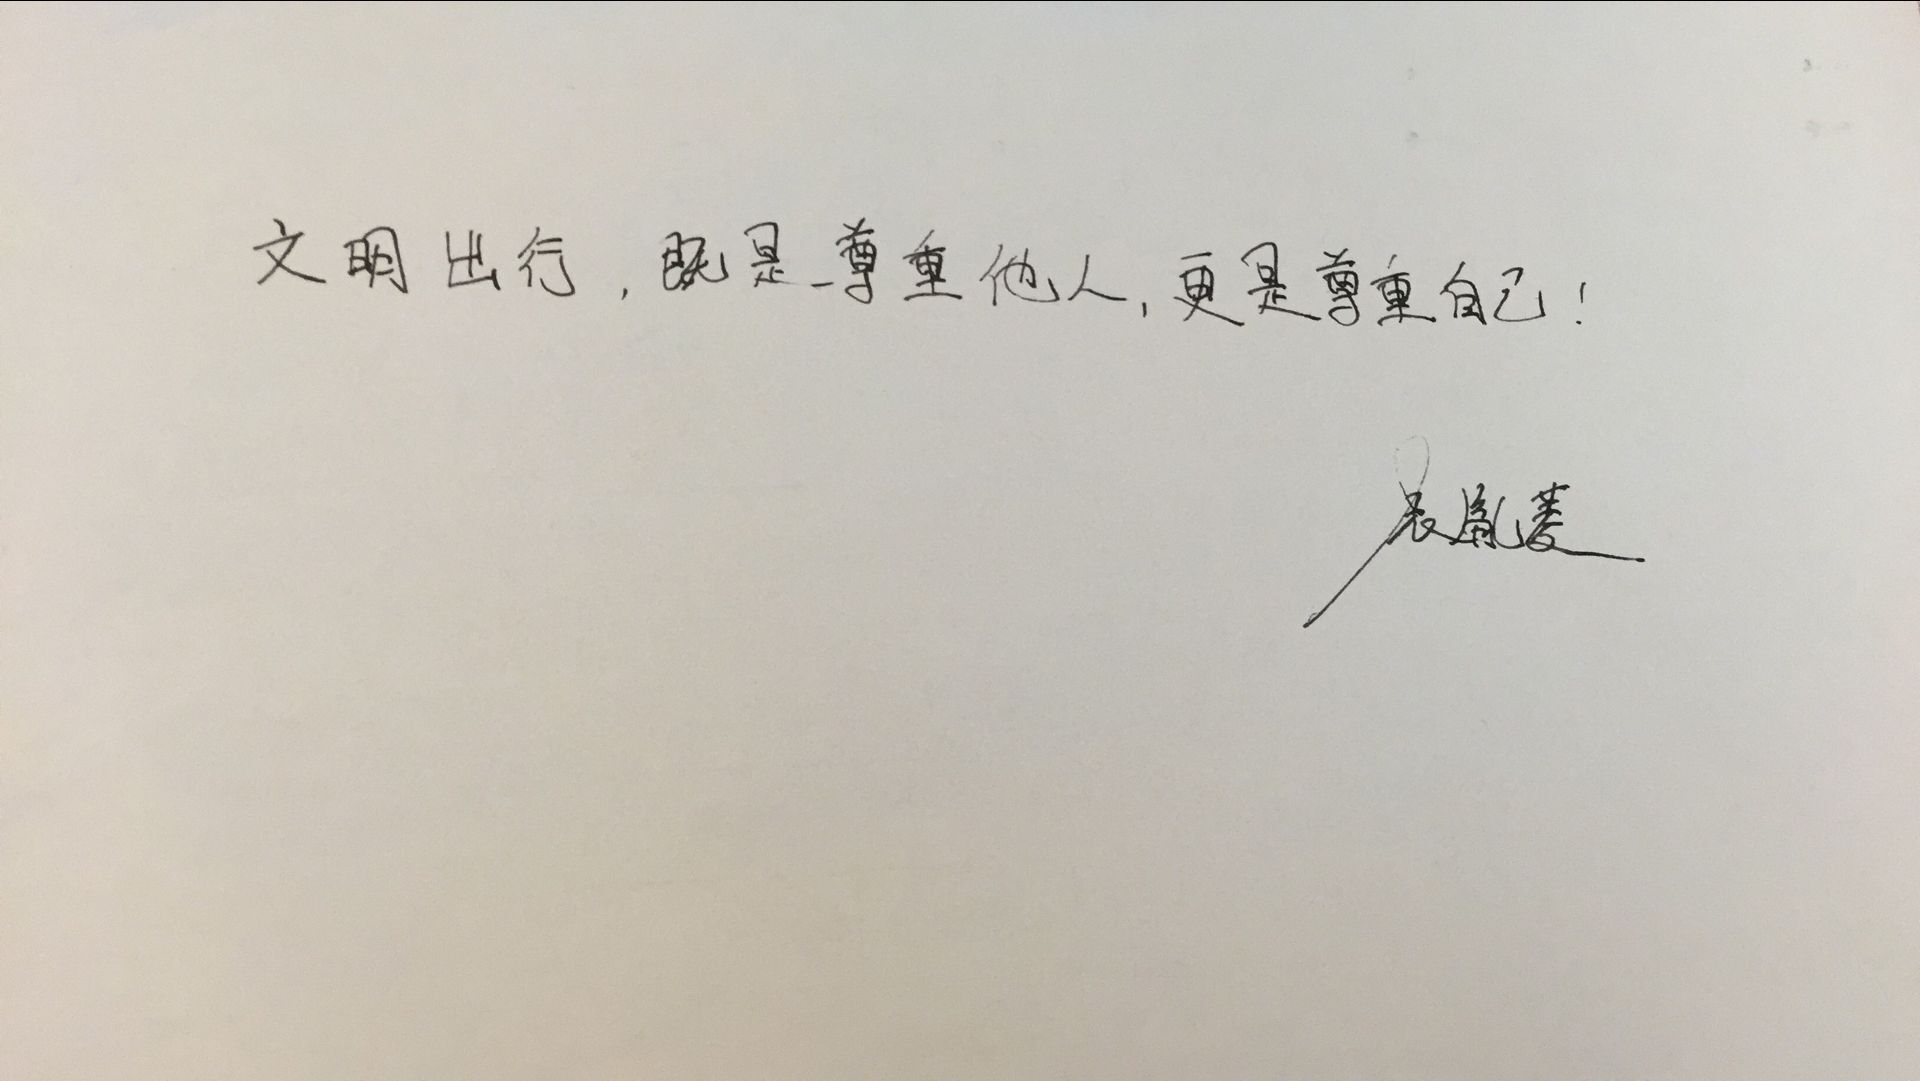 文明出行，既是尊重他人，更是尊重自己！